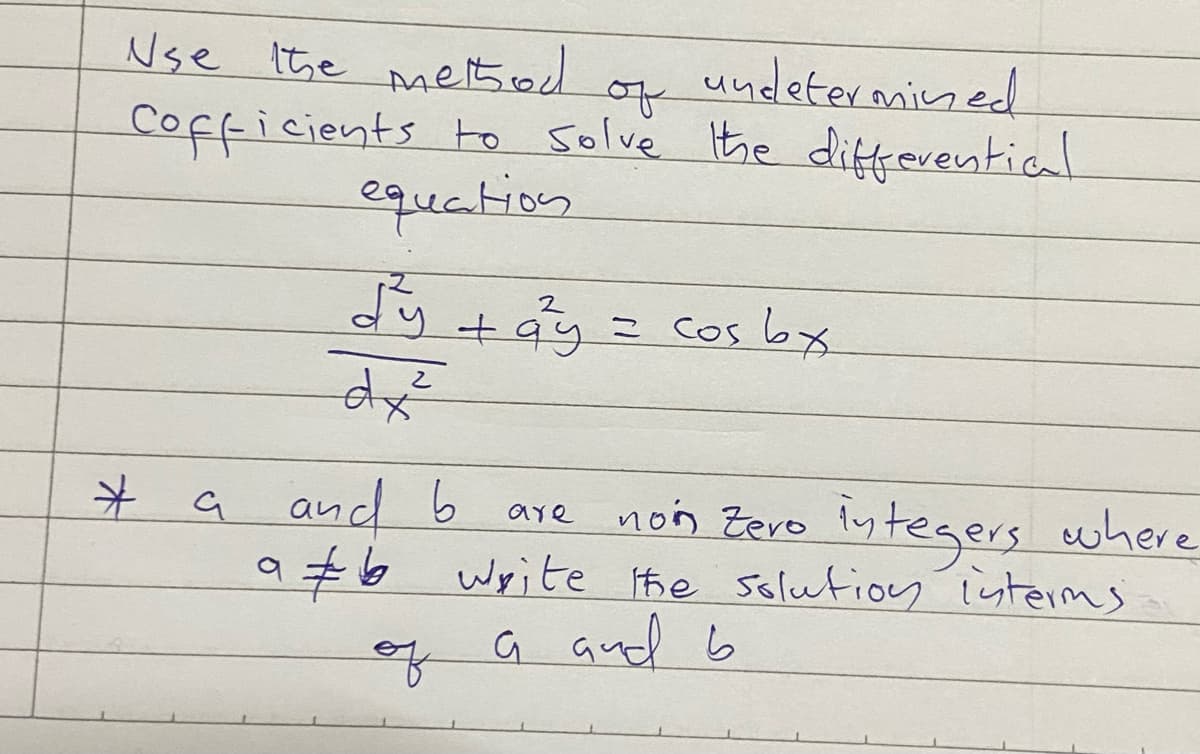 Use the method of undetermined
Cofficients to solve the differential
equation
d²y + a²y = cos bx
dx²
* a and b are non zero integers where
a ≠ b write the solution interms
of a and b